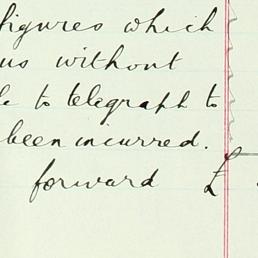 figures which
us without
to telegraph to
been incurred.
forward £